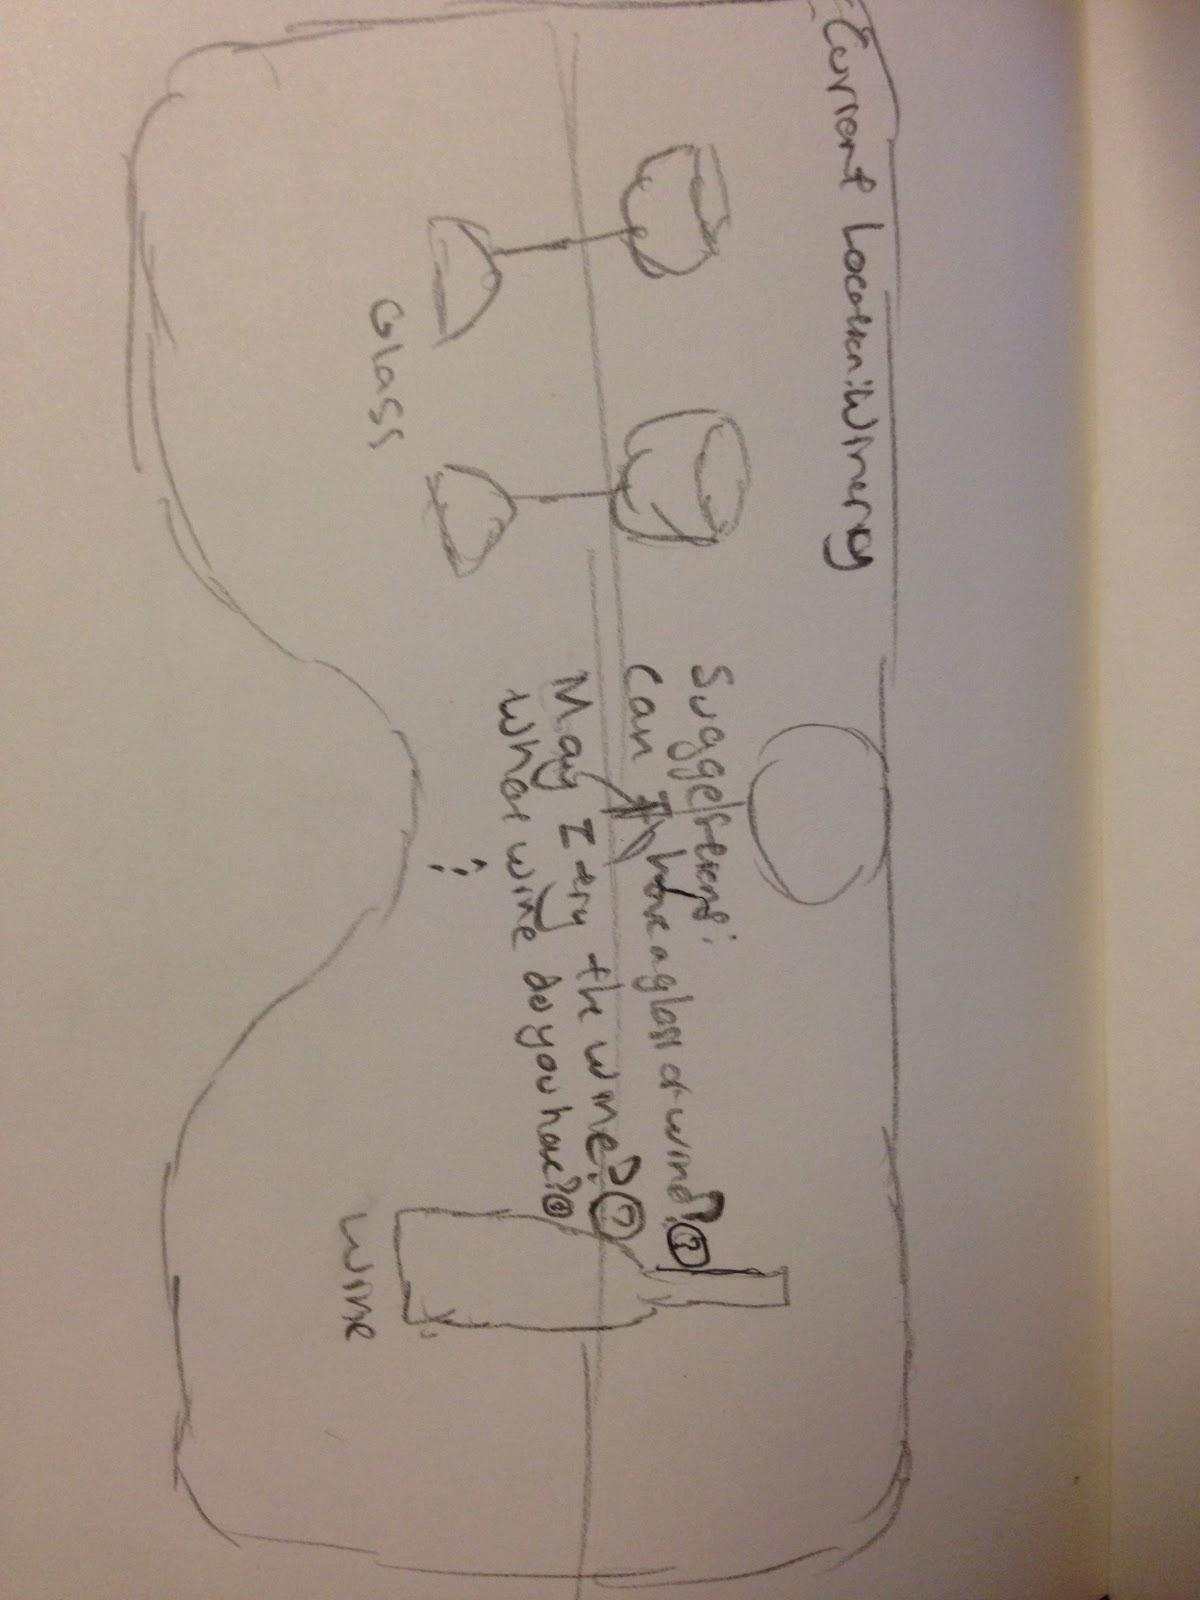 Current Location: Winery
Suggestions:
Can I have a glass of wine? ?
May I try the wine? ?
What wine do you have? ?
Glass
Wine